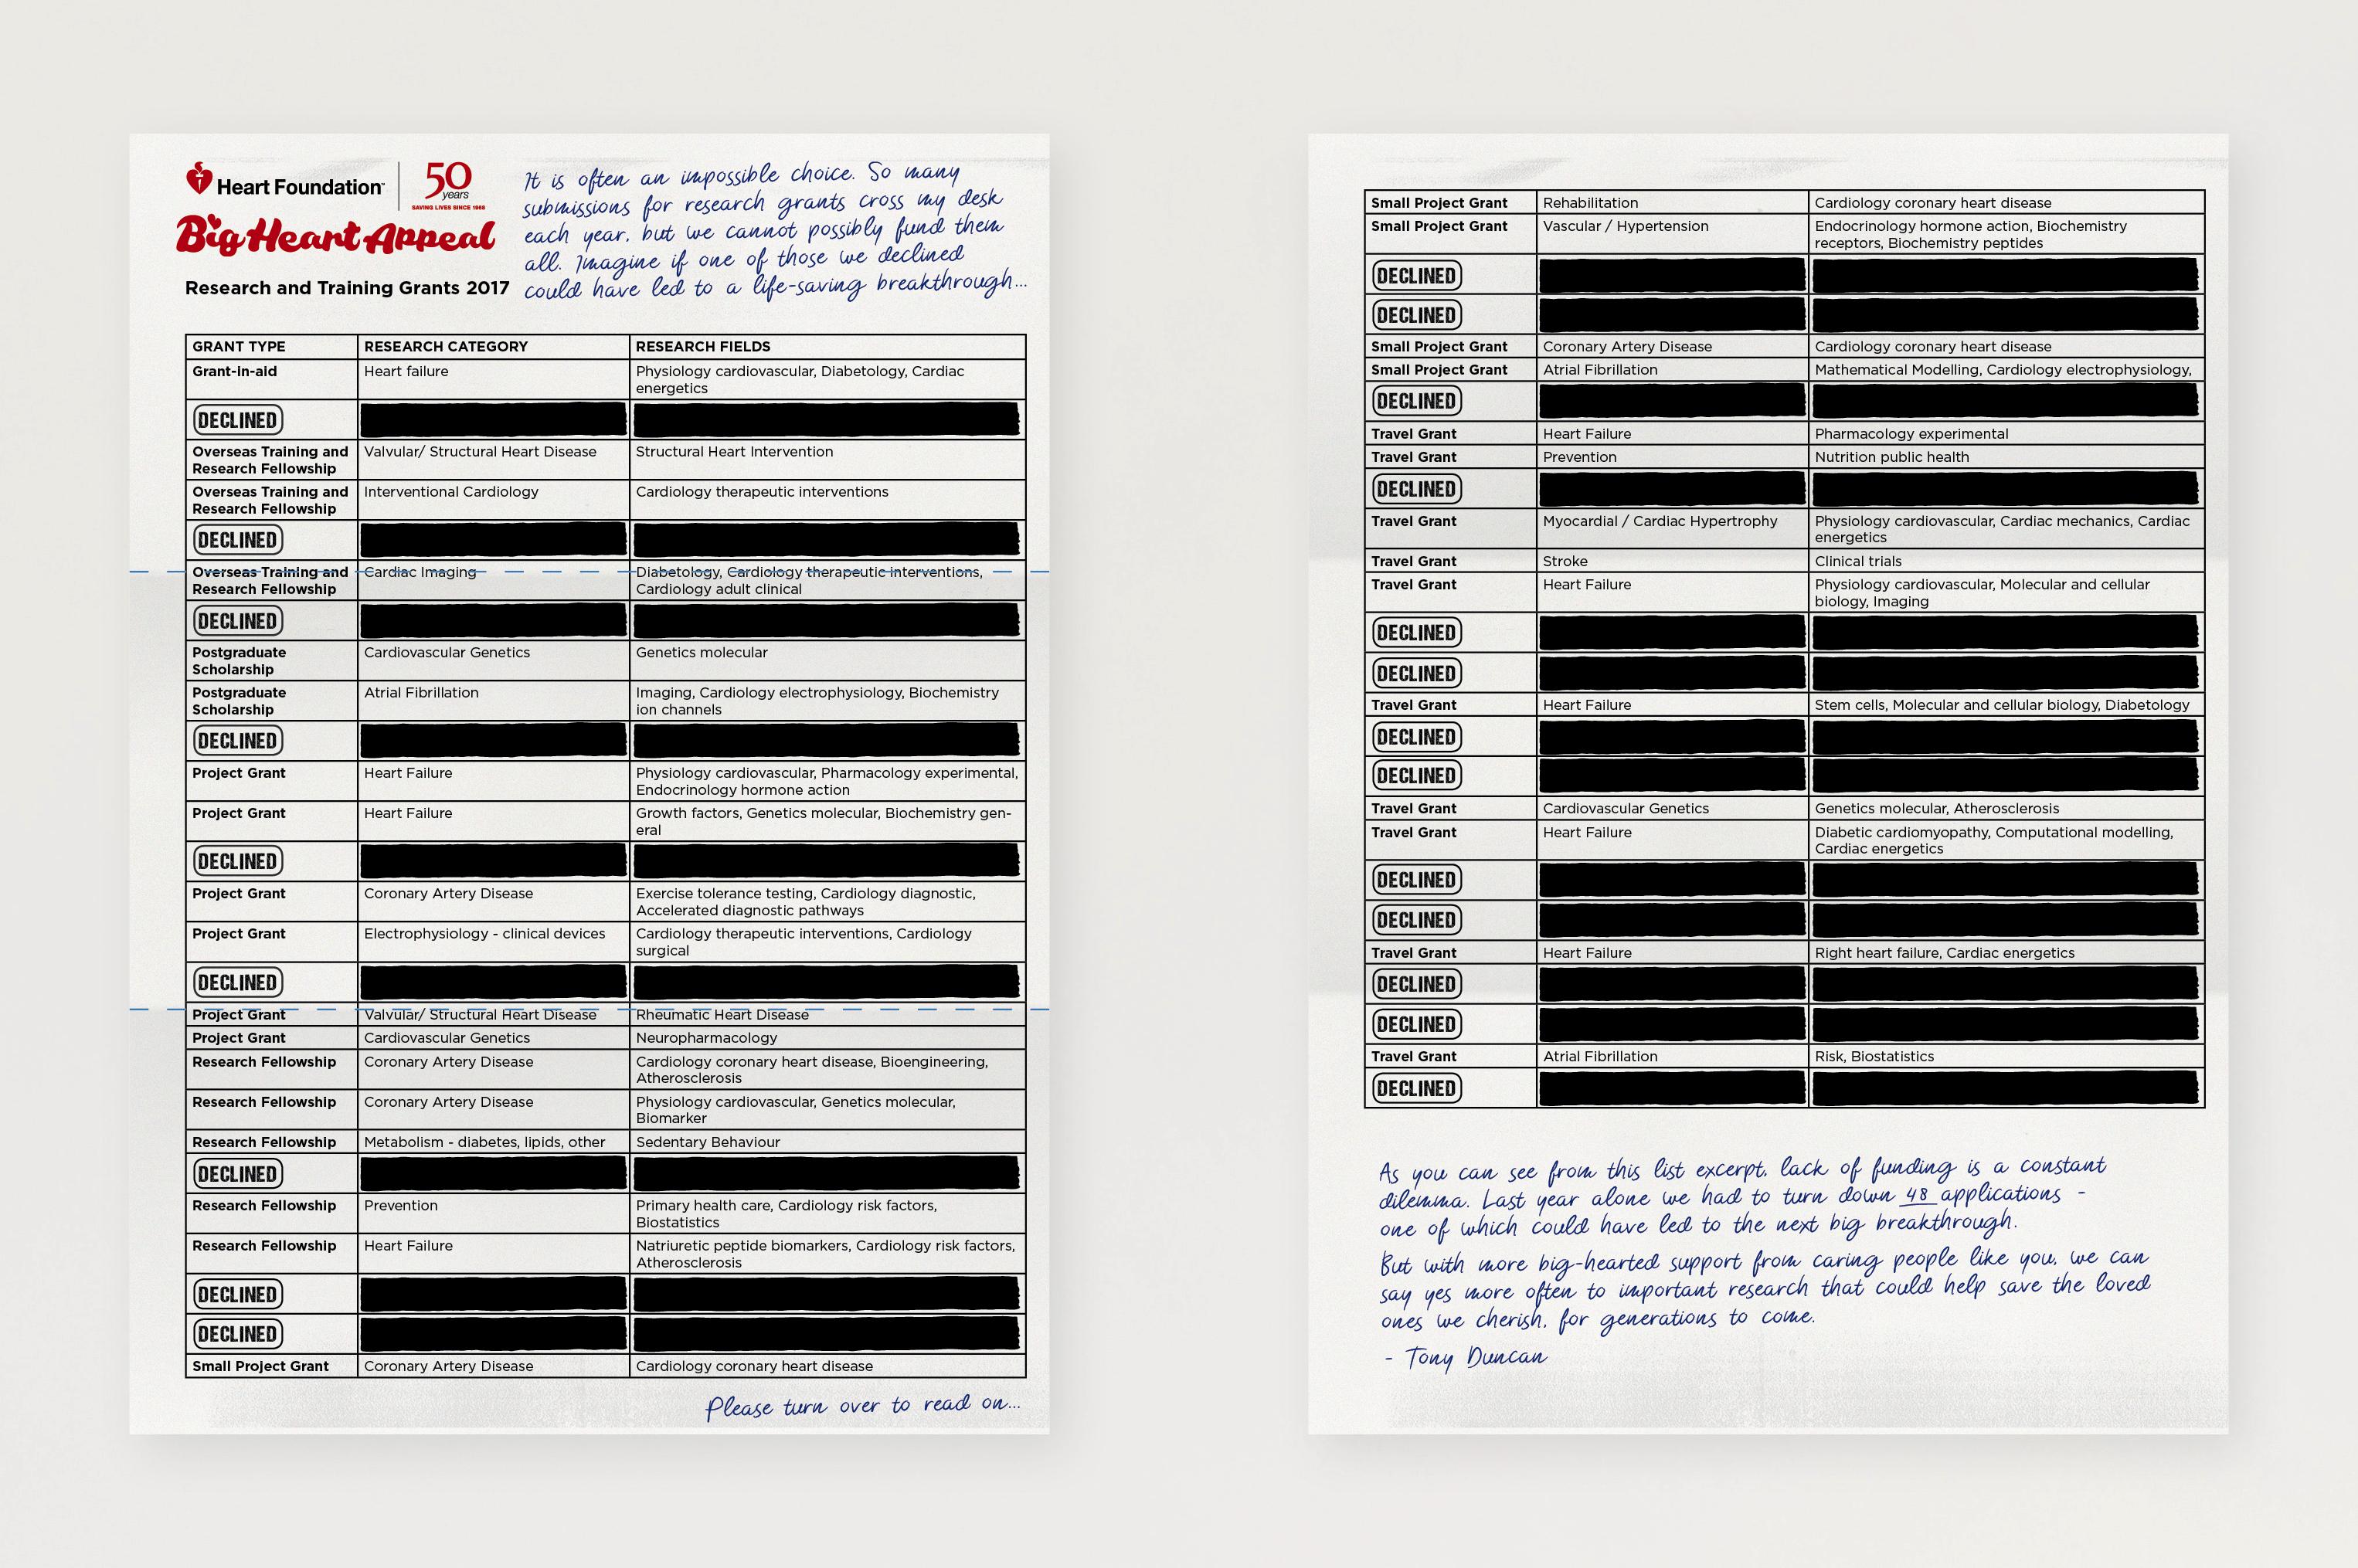 Heart Foundation™
50
years
SAVING LIVES SINCE 1968
Big Heart Appeal
Research and Training Grants 2017
It is often an impossible choice. So many
submissions for research grants cross my desk
each year, but we cannot possibly fund them
all. Imagine if one of those we declined
could have led to a life-saving breakthrough...
GRANT TYPE RESEARCH CATEGORY RESEARCH FIELDS
Grant-in-aid Heart failure Physiology cardiovascular, Diabetology, Cardiac
energetics
DECLINED
Overseas Training and Valvular/ Structural Heart Disease Structural Heart Intervention
Research Fellowship
Overseas Training and Interventional Cardiology Cardiology therapeutic interventions
Research Fellowship
DECLINED
Overseas Training and Cardiac Imaging Diabetology, Cardiology therapeutic interventions,
Research Fellowship Cardiology adult clinical
DECLINED
Postgraduate Cardiovascular Genetics Genetics molecular
Scholarship
Postgraduate Atrial Fibrillation Imaging, Cardiology electrophysiology, Biochemistry
Scholarship ion channels
DECLINED
Project Grant Heart Failure Physiology cardiovascular, Pharmacology experimental,
Endocrinology hormone action
Project Grant Heart Failure Growth factors, Genetics molecular, Biochemistry gen-
eral
DECLINED
Project Grant Coronary Artery Disease Exercise tolerance testing, Cardiology diagnostic,
Accelerated diagnostic pathways
Project Grant Electrophysiology - clinical devices Cardiology therapeutic interventions, Cardiology
surgical
DECLINED
Project Grant Valvular/ Structural Heart Disease Rheumatic Heart Disease
Project Grant Cardiovascular Genetics Neuropharmacology
Research Fellowship Coronary Artery Disease Cardiology coronary heart disease, Bioengineering,
Atherosclerosis
Research Fellowship Coronary Artery Disease Physiology cardiovascular, Genetics molecular,
Biomarker
Research Fellowship Metabolism - diabetes, lipids, other Sedentary Behaviour
DECLINED
Research Fellowship Prevention Primary health care, Cardiology risk factors,
Biostatistics
Research Fellowship Heart Failure Natriuretic peptide biomarkers, Cardiology risk factors,
Atherosclerosis
DECLINED
DECLINED
Small Project Grant Coronary Artery Disease Cardiology coronary heart disease
Please turn over to read on...
Small Project Grant Rehabilitation Cardiology coronary heart disease
Small Project Grant Vascular / Hypertension Endocrinology hormone action, Biochemistry
receptors, Biochemistry peptides
DECLINED
DECLINED
Small Project Grant Coronary Artery Disease Cardiology coronary heart disease
Small Project Grant Atrial Fibrillation Mathematical Modelling, Cardiology electrophysiology,
DECLINED
Travel Grant Heart Failure Pharmacology experimental
Travel Grant Prevention Nutrition public health
DECLINED
Travel Grant Myocardial / Cardiac Hypertrophy Physiology cardiovascular, Cardiac mechanics, Cardiac
energetics
Travel Grant Stroke Clinical trials
Travel Grant Heart Failure Physiology cardiovascular, Molecular and cellular
biology, Imaging
DECLINED
DECLINED
Travel Grant Heart Failure Stem cells, Molecular and cellular biology, Diabetology
DECLINED
DECLINED
Travel Grant Cardiovascular Genetics Genetics molecular, Atherosclerosis
Travel Grant Heart Failure Diabetic cardiomyopathy, Computational modelling,
Cardiac energetics
DECLINED
DECLINED
Travel Grant Heart Failure Right heart failure, Cardiac energetics
DECLINED
DECLINED
Travel Grant Atrial Fibrillation Risk, Biostatistics
DECLINED
As you can see from this list excerpt, lack of funding is a constant
dilemma. Last year alone we had to turn down 48 applications -
one of which could have led to the next big breakthrough.
But with more big-hearted support from caring people like you, we can
say yes more often to important research that could help save the loved
ones we cherish, for generations to come.
- Tony Duncan